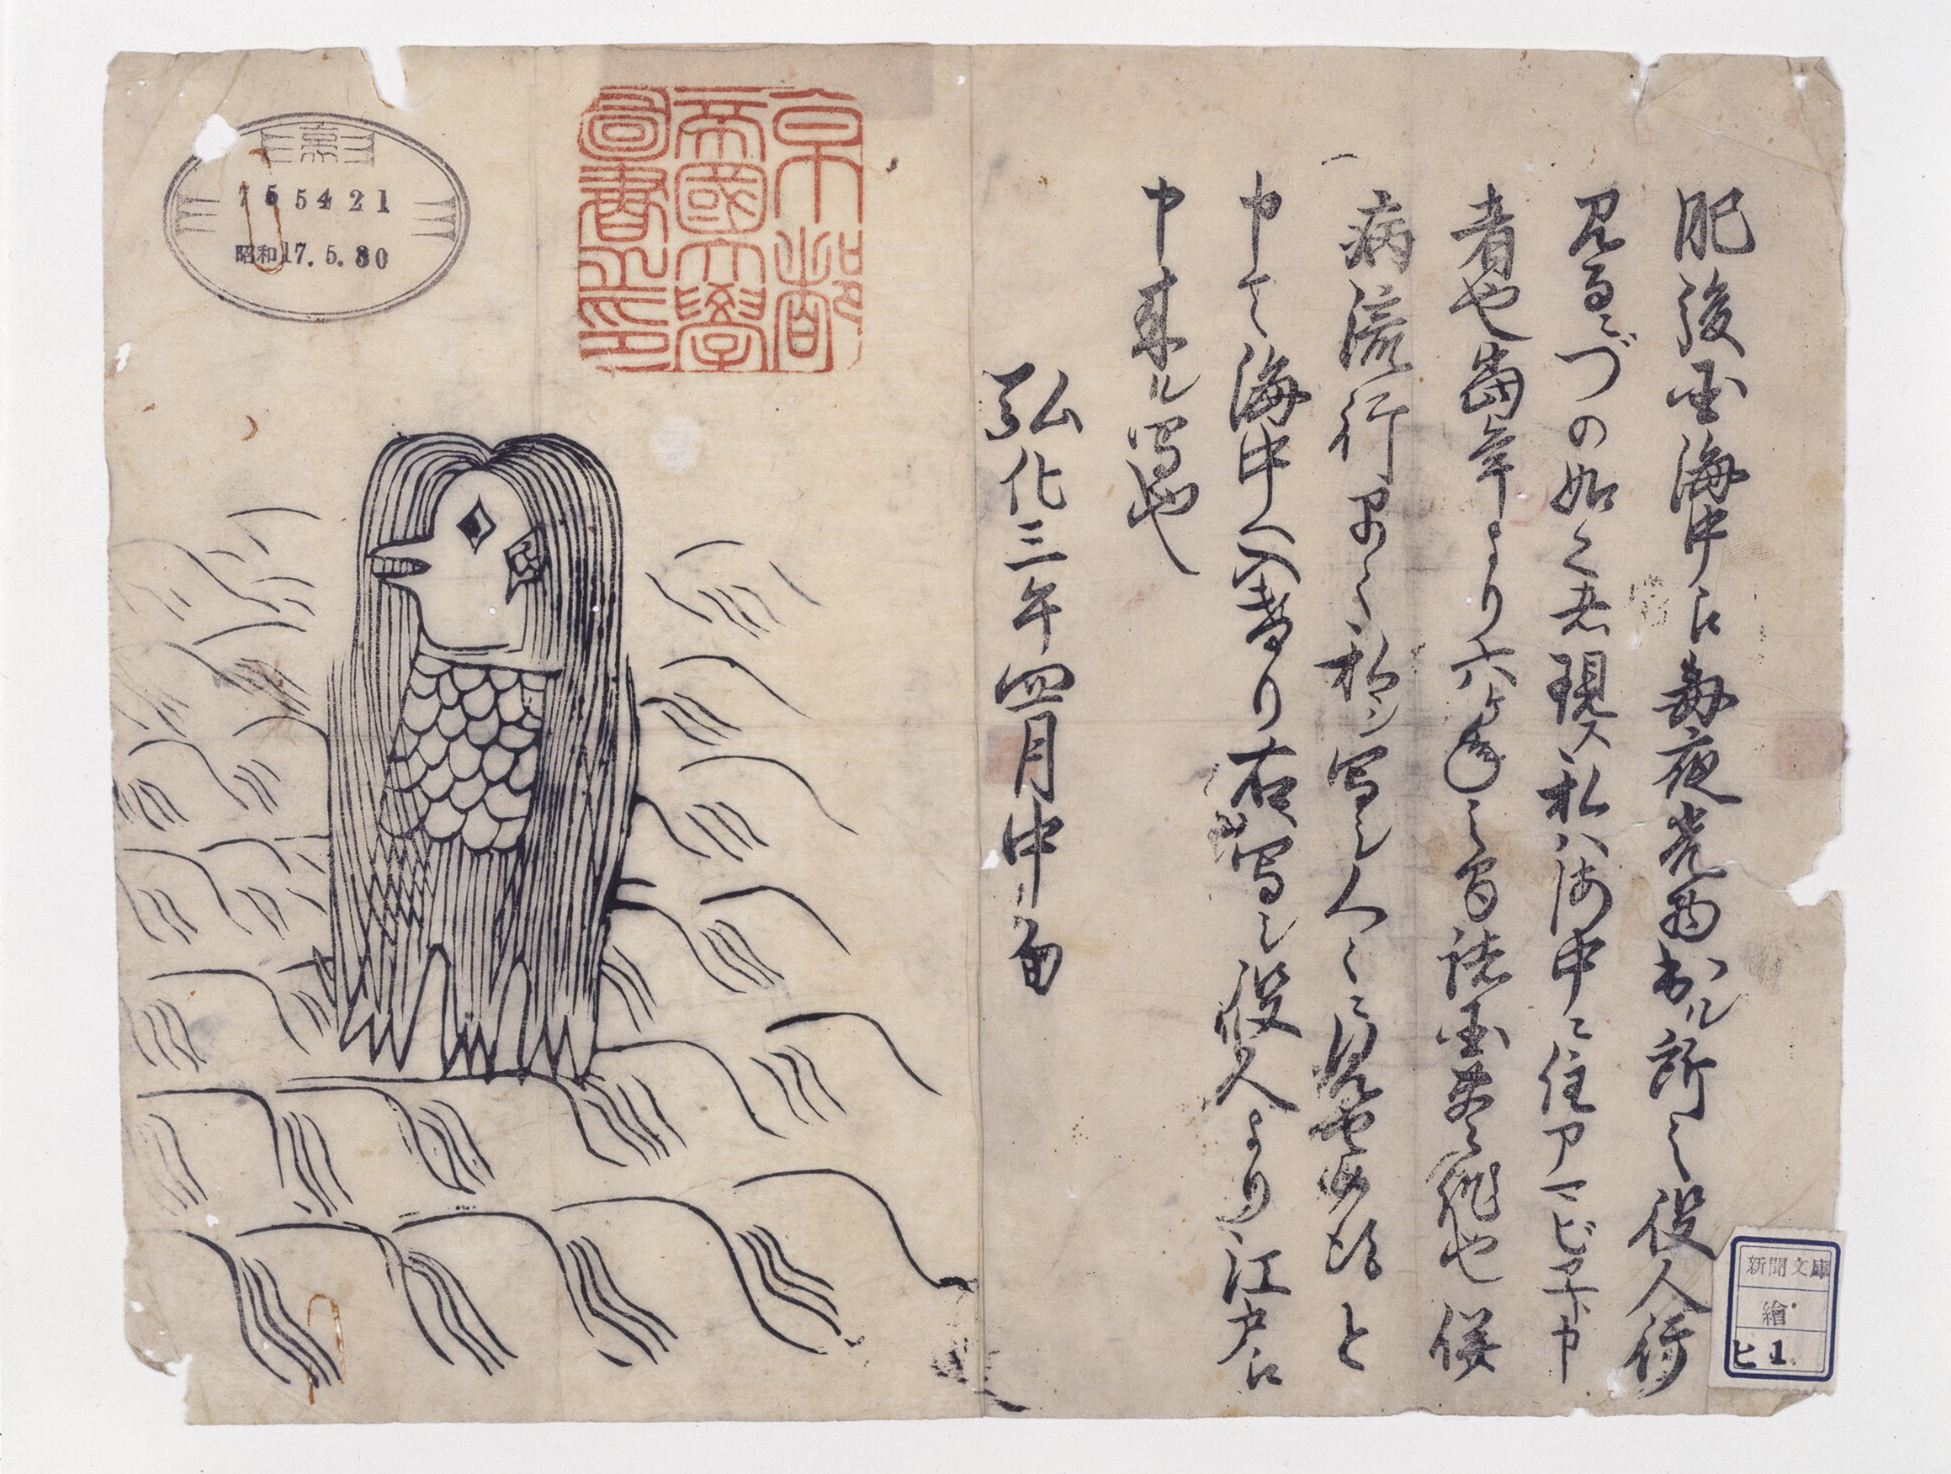 肥後国海中江毎夜光物出ル所之役人行
見るニづの如く者現ス私ハ海中ニ住アマビヱト申
者也當年より六ヶ年之間諸国豊作也併
病流行早々私シ写シ人々ニ見せ候得と
申て海中へ入けり右写シ役人より江戸江
申来ル写也
弘化三年四月中旬
京都
帝國大學
圖書之印
京
755421
昭和17.5.30
新聞文庫
繪
ヒ1.